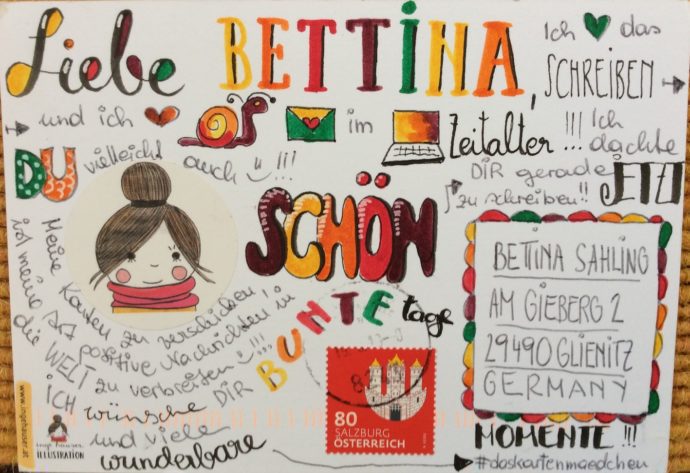 Liebe BETTINA,
Ich das
SCHREIBEN
und ich im Zeitalter !!! Ich
dachte
DIR gerade JETZT
zu schreiben!!
DU vielleicht auch !!!
SCHÖN
Meine Karten zu verschicken
ist meine Art positive Nachrichten in
die WELT zu verbreiten !!!
ICH wünsche DIR BUNTE tage
und viele
wunderbare
MOMENTE !!!
#daskartenmaedchen
BETTINA SAHLING
AM GIEBERG 2
29490 GLIENITZ
GERMANY
80
SALZBURG
ÖSTERREICH
www.ingehauser.at
inge hauser
ILLUSTRATION